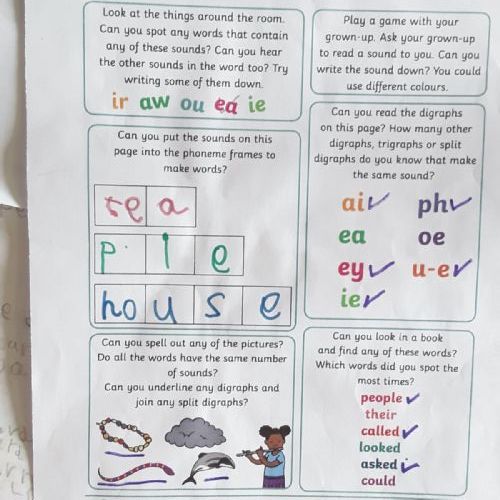 Look at the things around the room.
Can you spot any words that contain
any of these sounds? Can you hear
the other sounds in the word too? Try
writing some of them down.
ir aw ou ea ie
Play a game with your
grown-up. Ask your grown-up
to read a sound to you. Can you
write the sound down? You could
use different colours.
Can you put the sounds on this
page into the phoneme frames to
make words?
p i e
house
Can you read the digraphs
on this page? How many other
digraphs, trigraphs or split
digraphs do you know that make
the same sound?
ai ph
ea oe
ey u-e
ie
Can you spell out any of the pictures?
Do all the words have the same number
of sounds?
Can you underline any digraphs and
join any split digraphs?
Can you look in a book
and find any of these words?
Which words did you spot the
most times?
people
their
called
looked
asked
could